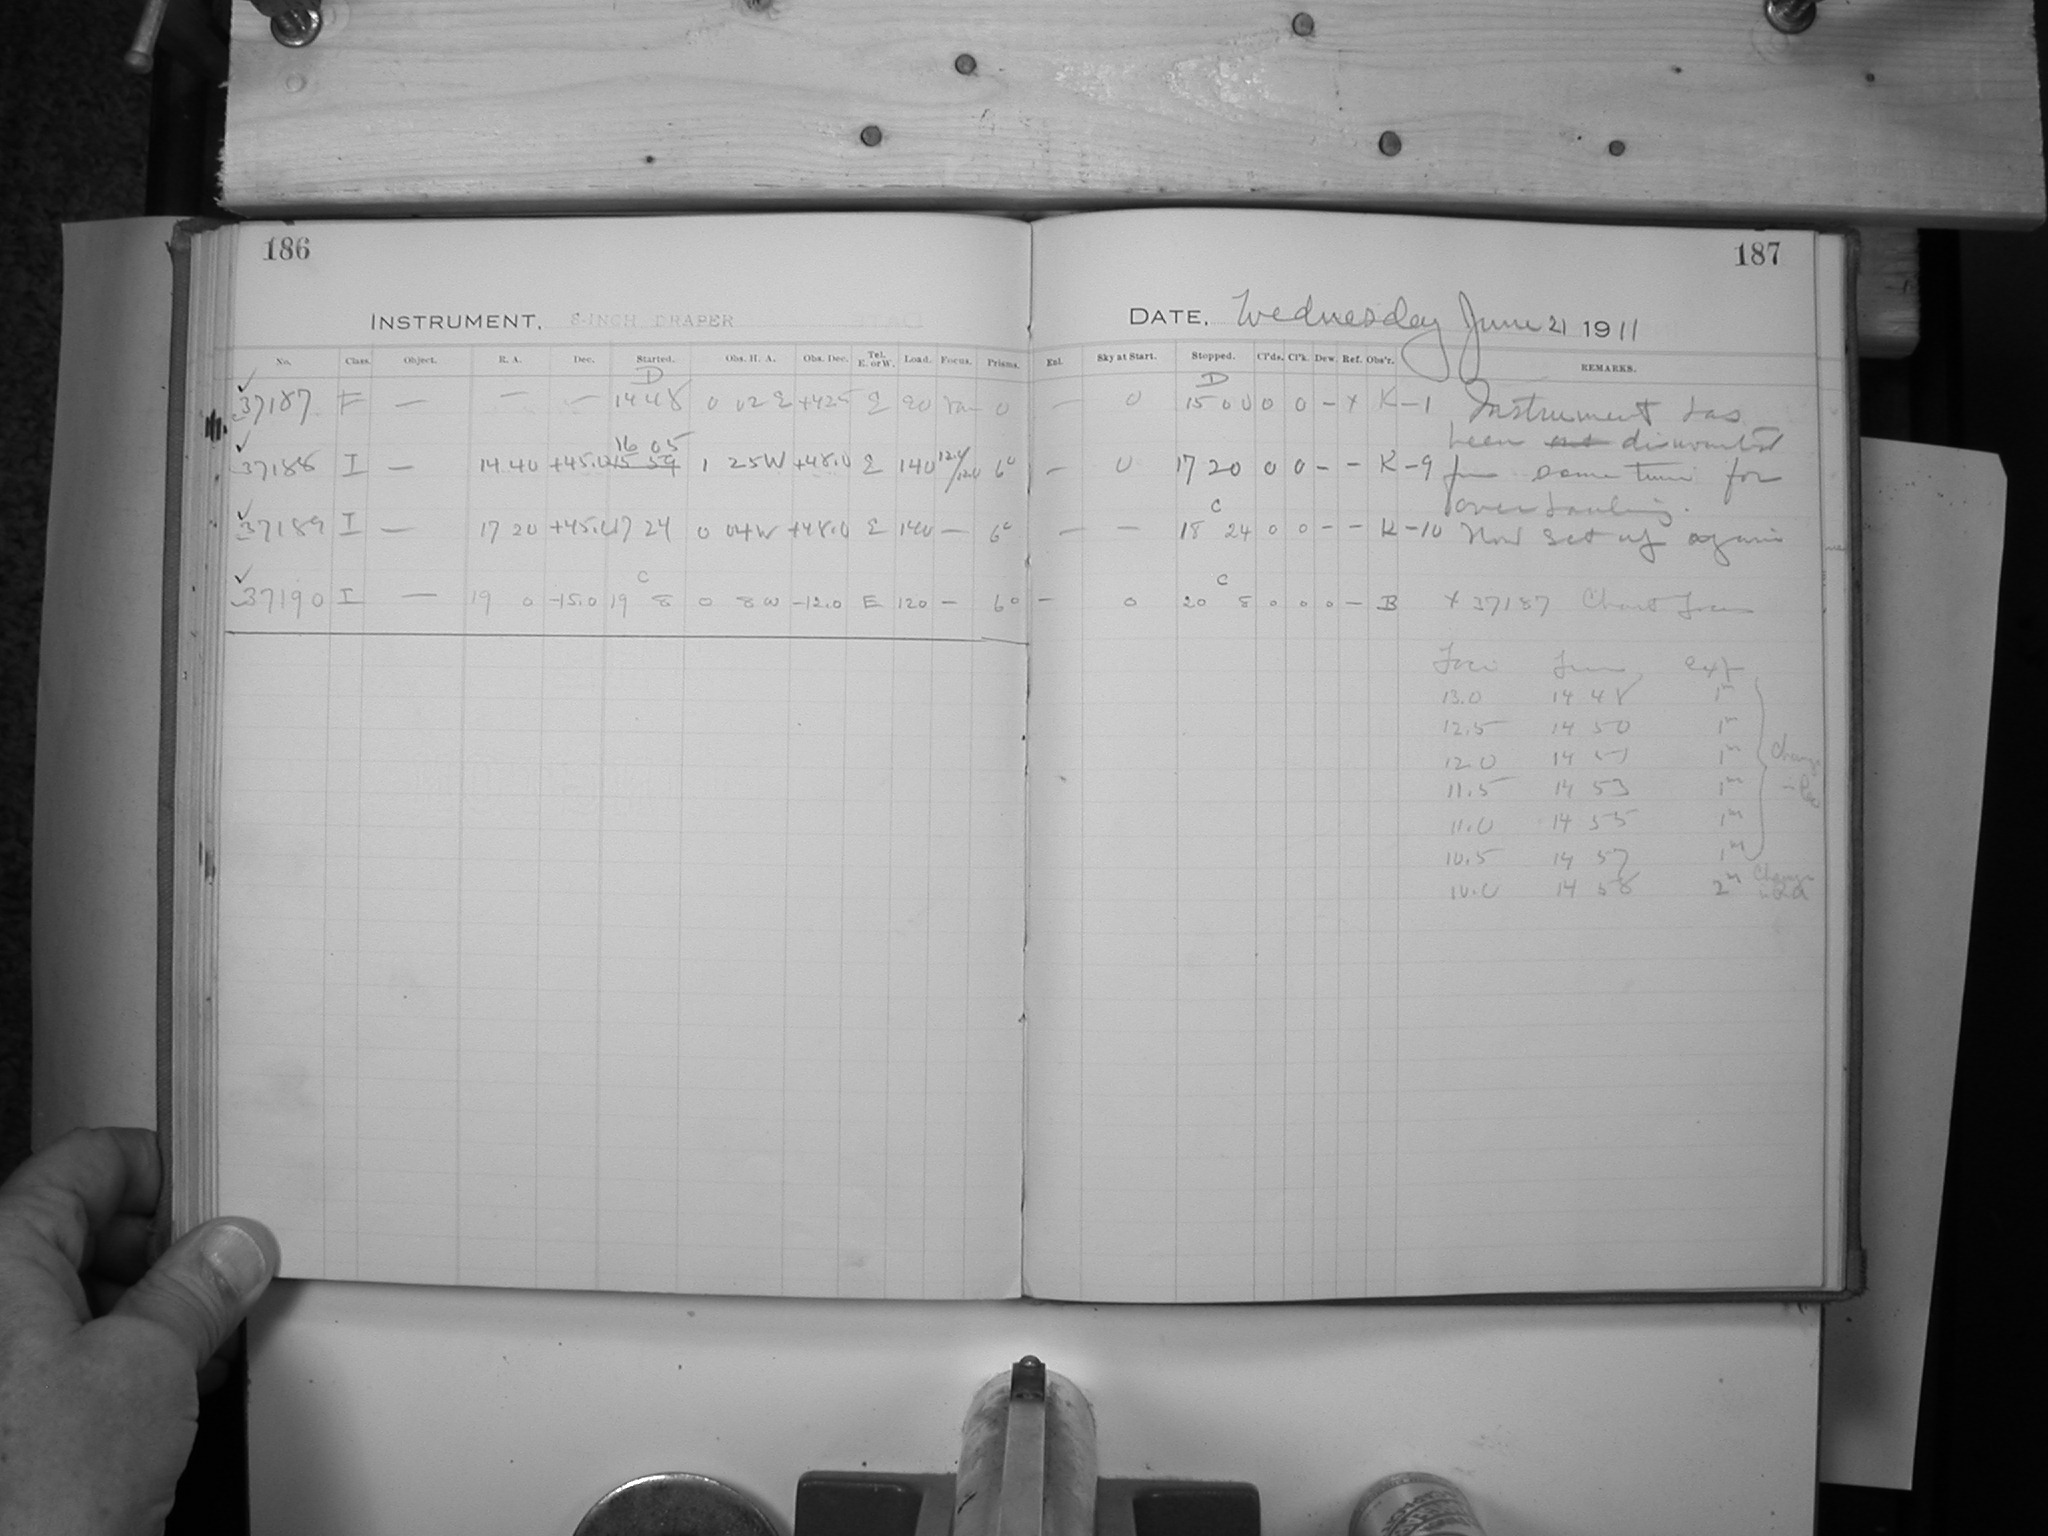 186
187
INSTRUMENT. 8-INCH DRAPER
DATE, Wednesday June 21 1911
No. Class. Object. R. A. Dec. Started. Obs. H. A. Obs. Dec. Tel. E. or W. Load. Focus. Prisms.
Enl. Sky at Start. Stopped. Cl'ds. Cl'k. Dew. Ref. Obs'r. REMARKS.
D
37187 F — — — 14 48 0 02 E +42.5 E 20 Var 0
D
— 0 15 00 0 0 - x K-1 Instrument has
been dismounted
16 05
37188 I — 14.40 +45.0 15 59 1 25W +48.0 E 140 12.0/12.0 6°
— 0 17 20 0 0 - - K-9 for some time for
overhauling.
37189 I — 17 20 +45.0 17 24 0 04W +48.0 E 140 — 6°
C
— — 18 24 0 0 - - K-10 Now set up again
C
37190 I — 19 0 -15.0 19 8 0 8 W -12.0 E 120 - 6°
C
— 0 20 8 0 0 0 — B x 37187 Chart Focus
Foci Time exp
13.0 14 48 1m
12.5 14 50 1m
12.0 14 51 1m
11.5 14 53 1m
11.0 14 55 1m
10.5 14 57 1m
10.0 14 58 2m
Change
in
Change
in